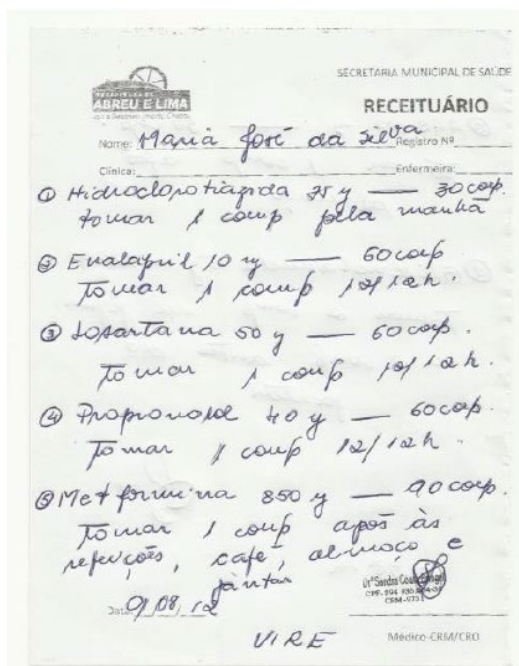 SECRETARIA MUNICIPAL DE SAÚDE
PREFEITURA DE
ABREU E LIMA
RECEITUÁRIO
Nome: Maria José da Silva Registro Nº
Clínica: Enfermeira:
① Hidroclorotiazida 25 mg — 30 comp.
tomar 1 comp pela manhã
② Enalapril 10 mg — 60 comp
Tomar 1 comp 12/12h.
③ Losartana 50 mg — 60 comp.
Tomar 1 comp 12/12h.
④ Propranolol 40 mg — 60 comp.
Tomar 1 comp 12/12h.
⑤ Metformina 850 mg — 90 comp.
Tomar 1 comp após às
refeições, café, almoço e
jantar
Drª Sandra
CRM-9731
Data: 01/08/12
VIRE
Médico-CRM/CRO